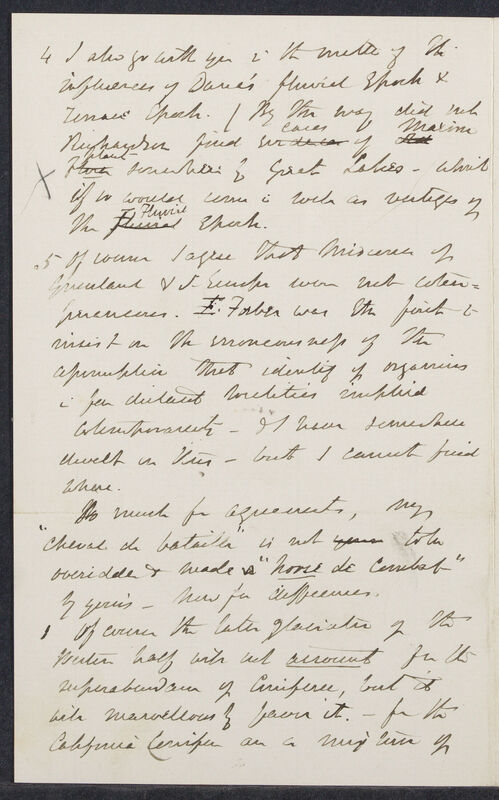 4 I also go with you in the matter of the
influences of Dana's fluvial Epoch &
Terrace Epoch. / By the way did not
Richardson find cases of Marine
plant somewhere by Great Lakes – which
if so would come in well as vestiges of
the Fluvial Epoch.
5 Of course I agree that Miocenes of
Greenland & S. Europe were not cotem=
poraneous. E. Forbes was the first to
insist on the erroneousness of the
assumption that identity of organisms
in far distant localities implied
cotemporaneity – I have somewhere
dwelt on this – but I cannot find
where.
So much for agreements, my
"cheval de bataille" is not to be
overidden & made a "horse de combat"
by yours – Now for differences.
1 Of course the later glaciation of the
Western half will not account for the
superabundance of Coniferae, but it
will marvellously favor it. – for the
California Conifers are a mixture of